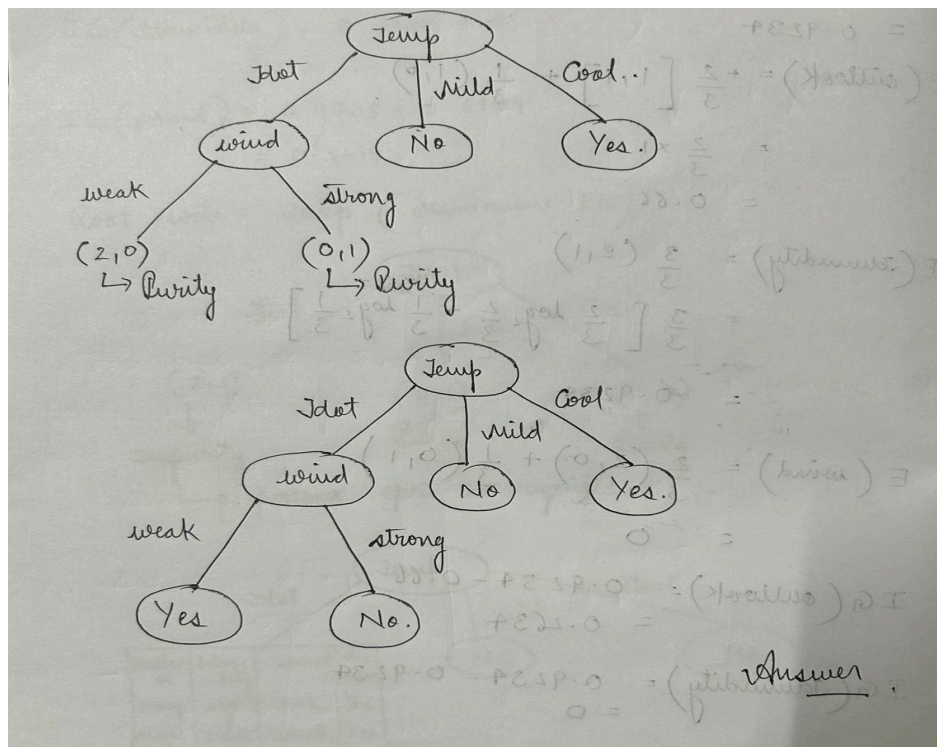 Temp
Hot
Mild
Cool..
wind
No
Yes.
weak
strong
(2,0)
(0,1)
↳ Purity
↳ Purity
Temp
Hot
Mild
Cool
wind
No
Yes.
weak
strong
Yes
No.
Answer.